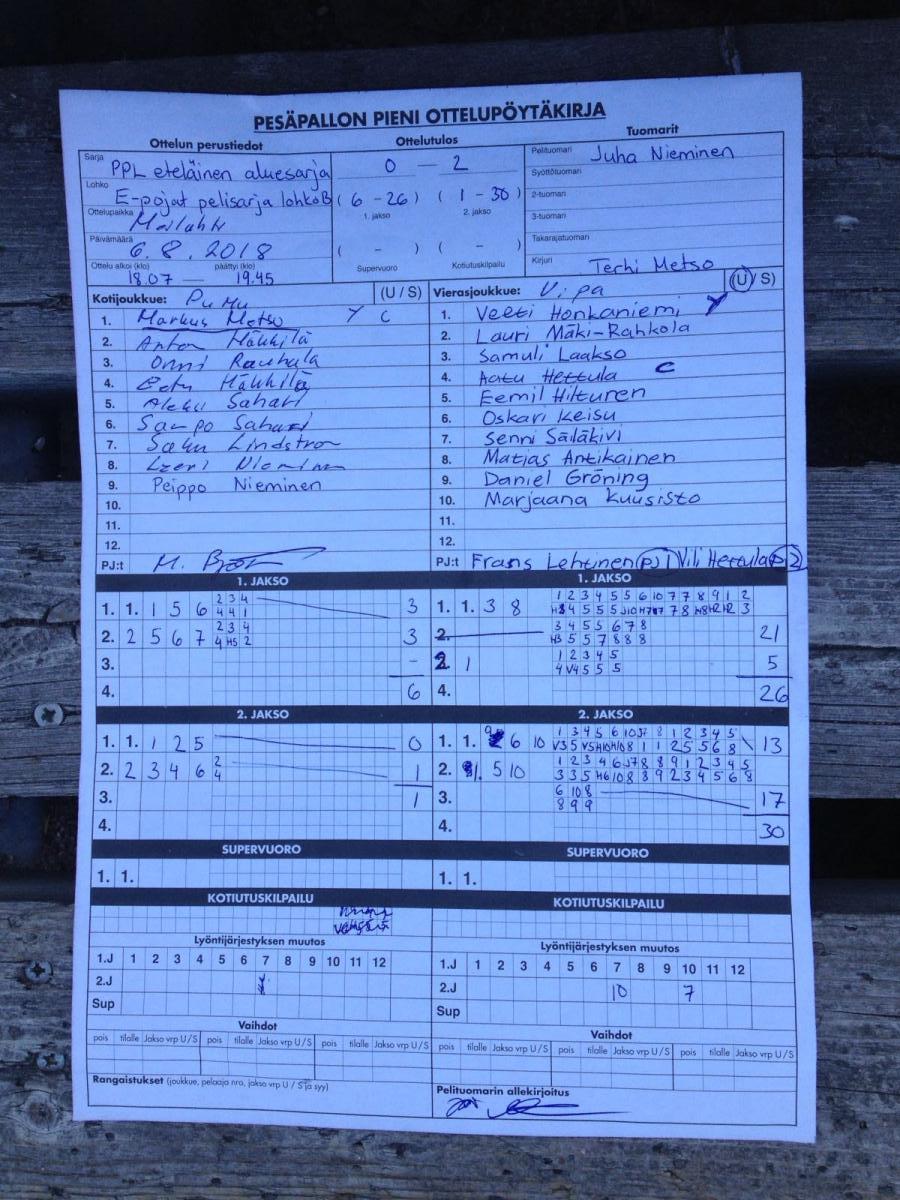 PESÄPALLON PIENI OTTELUPÖYTÄKIRJA
Ottelun perustiedot
Ottelutulos
Tuomarit
Sarja PPL eteläinen aluesarja
Lohko E-pojat pelisarja lohko B
Ottelupaikka Meilahti
Päivämäärä 6.8.2018
Ottelu alkoi (klo) 18.07 — päättyi (klo) 19.45
0 — 2
(6 - 26) (1 - 30)
1. jakso 2. jakso
( - ) ( - )
Supervuoro Kotiutuskilpailu
Pelituomari Juha Nieminen
Syöttötuomari
2-tuomari
3-tuomari
Takarajatuomari
Kirjuri Terhi Metso
Kotijoukkue: PuMu (U / S)
1. Markus Metso Y C
2. Anton Häkkilä
3. Onni Rauhala
4. Eetu Häkkilä
5. Sahari
6. Sampo Sahari
7. Lindström
8.
9. Peippo Nieminen
10.
11.
12.
PJ:t M.
Vierasjoukkue: Vipa (U / S)
1. Veeti Honkaniemi Y
2. Lauri Mäki-Rahkola
3. Samuli Laakso
4. Aatu Hettula C
5. Eemil Hilturen
6. Oskari Keisu
7. Senni Säiläkivi
8. Matias Antikainen
9. Daniel Gröning
10. Marjaana Kuusisto
11.
12.
PJ:t Frans Lehtinen PJ1 Vili Hettula PJ2
1. JAKSO
1. 1. 1 5 6 2 3 4 3
4 4 1
2. 2 5 6 7 2 3 4 3
4 H5 2
3. -
4. 6
1. JAKSO
1. 1. 3 8 1 2 3 4 5 5 6 10 7 7 8 9 1 2
2. 3 4 5 5 6 7 8 21
H3 5 5 7 8 8 8
2. 1 1 2 3 4 5 5
4 V4 5 5 5
4. 26
2. JAKSO
1. 1. 1 2 5 0
2. 2 3 4 6 2 1
4
3. 1
4.
2. JAKSO
1. 1. 9 6 10 1 3 4 5 6 10 7 8 1 2 3 4 5 13
2. 1. 5 10
3 3 5 H6 10 8 8 9 2 3 4 5 6 8
3. 6 10 8 17
8 9 9
4. 30
SUPERVUORO
1. 1.
SUPERVUORO
1. 1.
KOTIUTUSKILPAILU
KOTIUTUSKILPAILU
Lyöntijärjestyksen muutos
1.J 1 2 3 4 5 6 7 8 9 10 11 12
2.J
Sup
Lyöntijärjestyksen muutos
1.J 1 2 3 4 5 6 7 8 9 10 11 12
2.J 10 7
Sup
Vaihdot
pois tilalle Jakso vrp U/S pois tilalle Jakso vrp U/S pois tilalle Jakso vrp U/S
Vaihdot
pois tilalle Jakso vrp U/S pois tilalle Jakso vrp U/S pois tilalle Jakso vrp U/S
Rangaistukset (joukkue, pelaaja nro, jakso vrp U / S ja syy)
Pelituomarin allekirjoitus